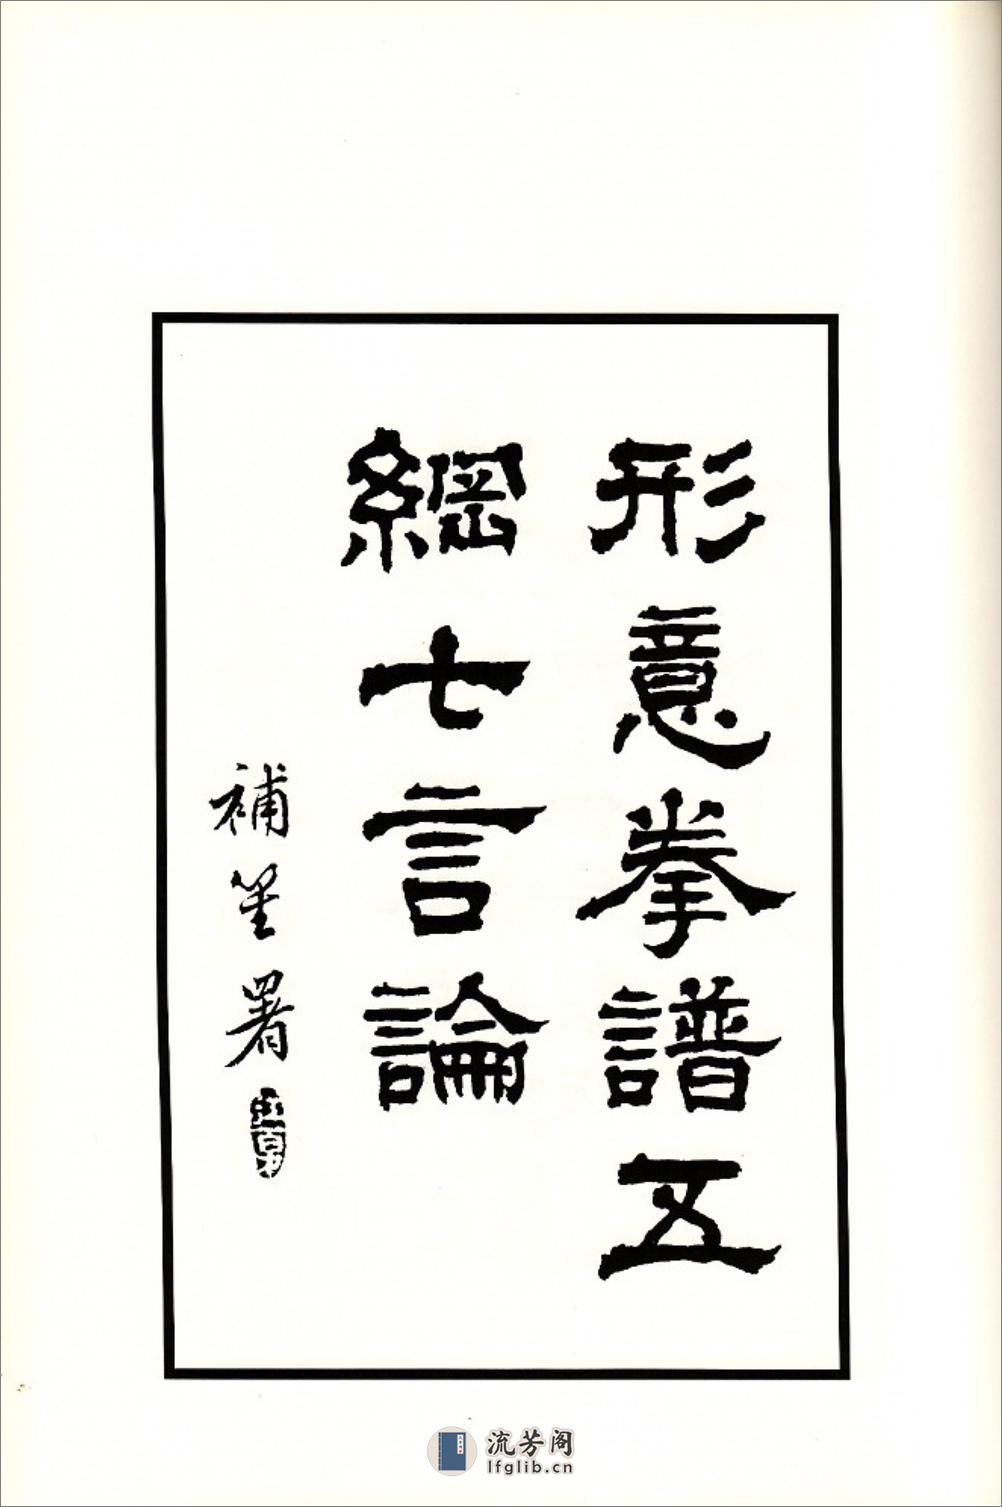 形意拳譜五
綱七言論
補笙署
流芳阁
lfglib.cn